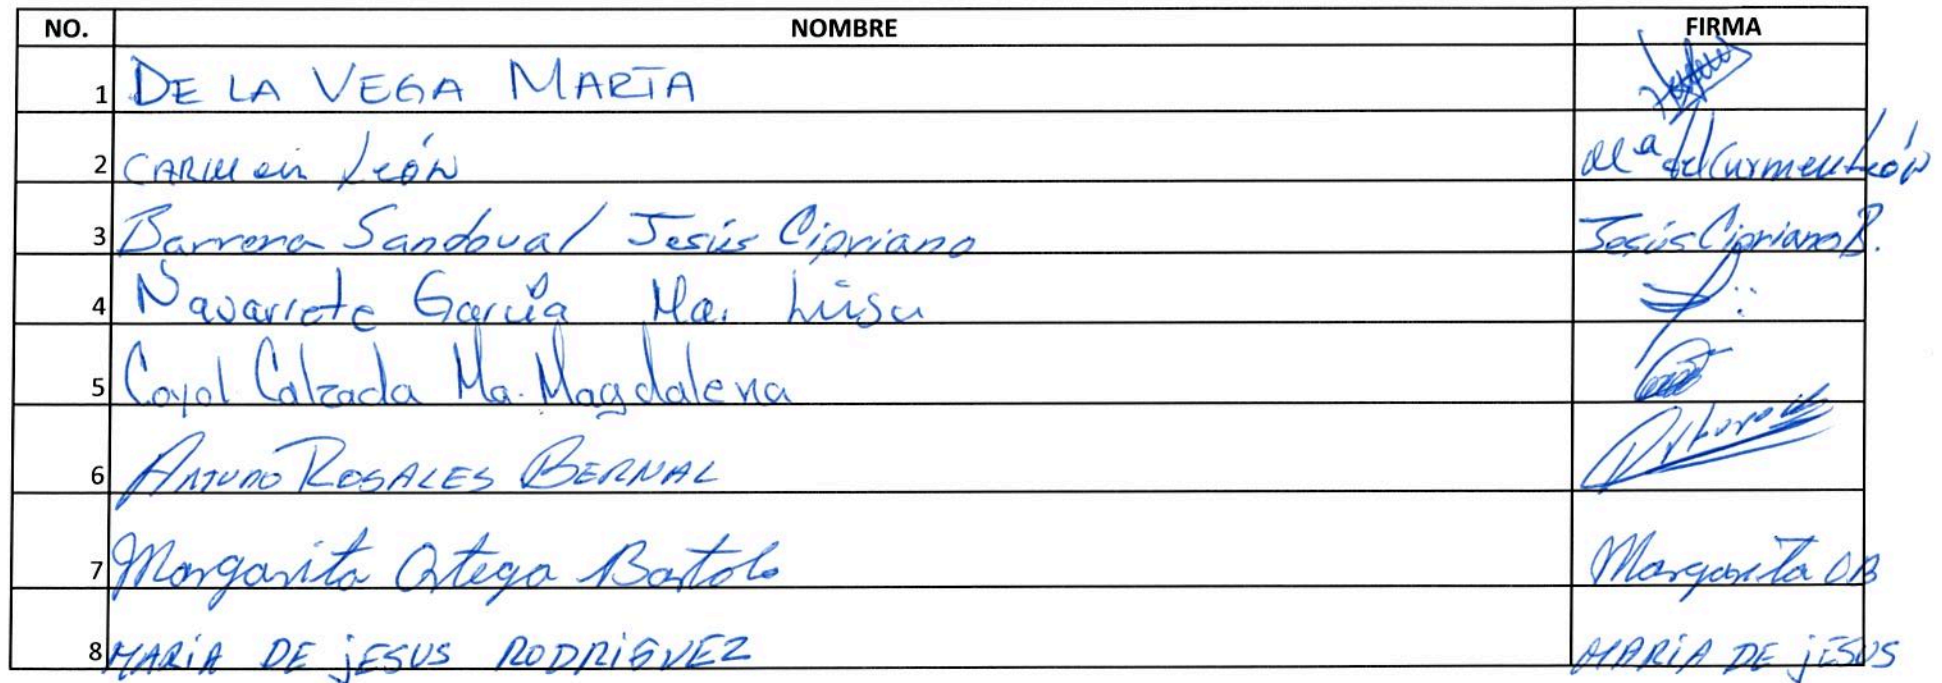 NO. NOMBRE FIRMA
1 DE LA VEGA MARTA
2 CARMEN León Mª del Carmen León
3 Barrera Sandoval Jesús Cipriano Jesús Cipriano B.
4 Navarrete García Ma. Luisa
5 Coyol Calzada Ma. Magdalena
6 ARTURO ROSALES BERNAL
7 Margarita Ortega Bartolo Margarita O B
8 MARÍA DE jESUS RODRIGUEZ MARÍA DE jESUS